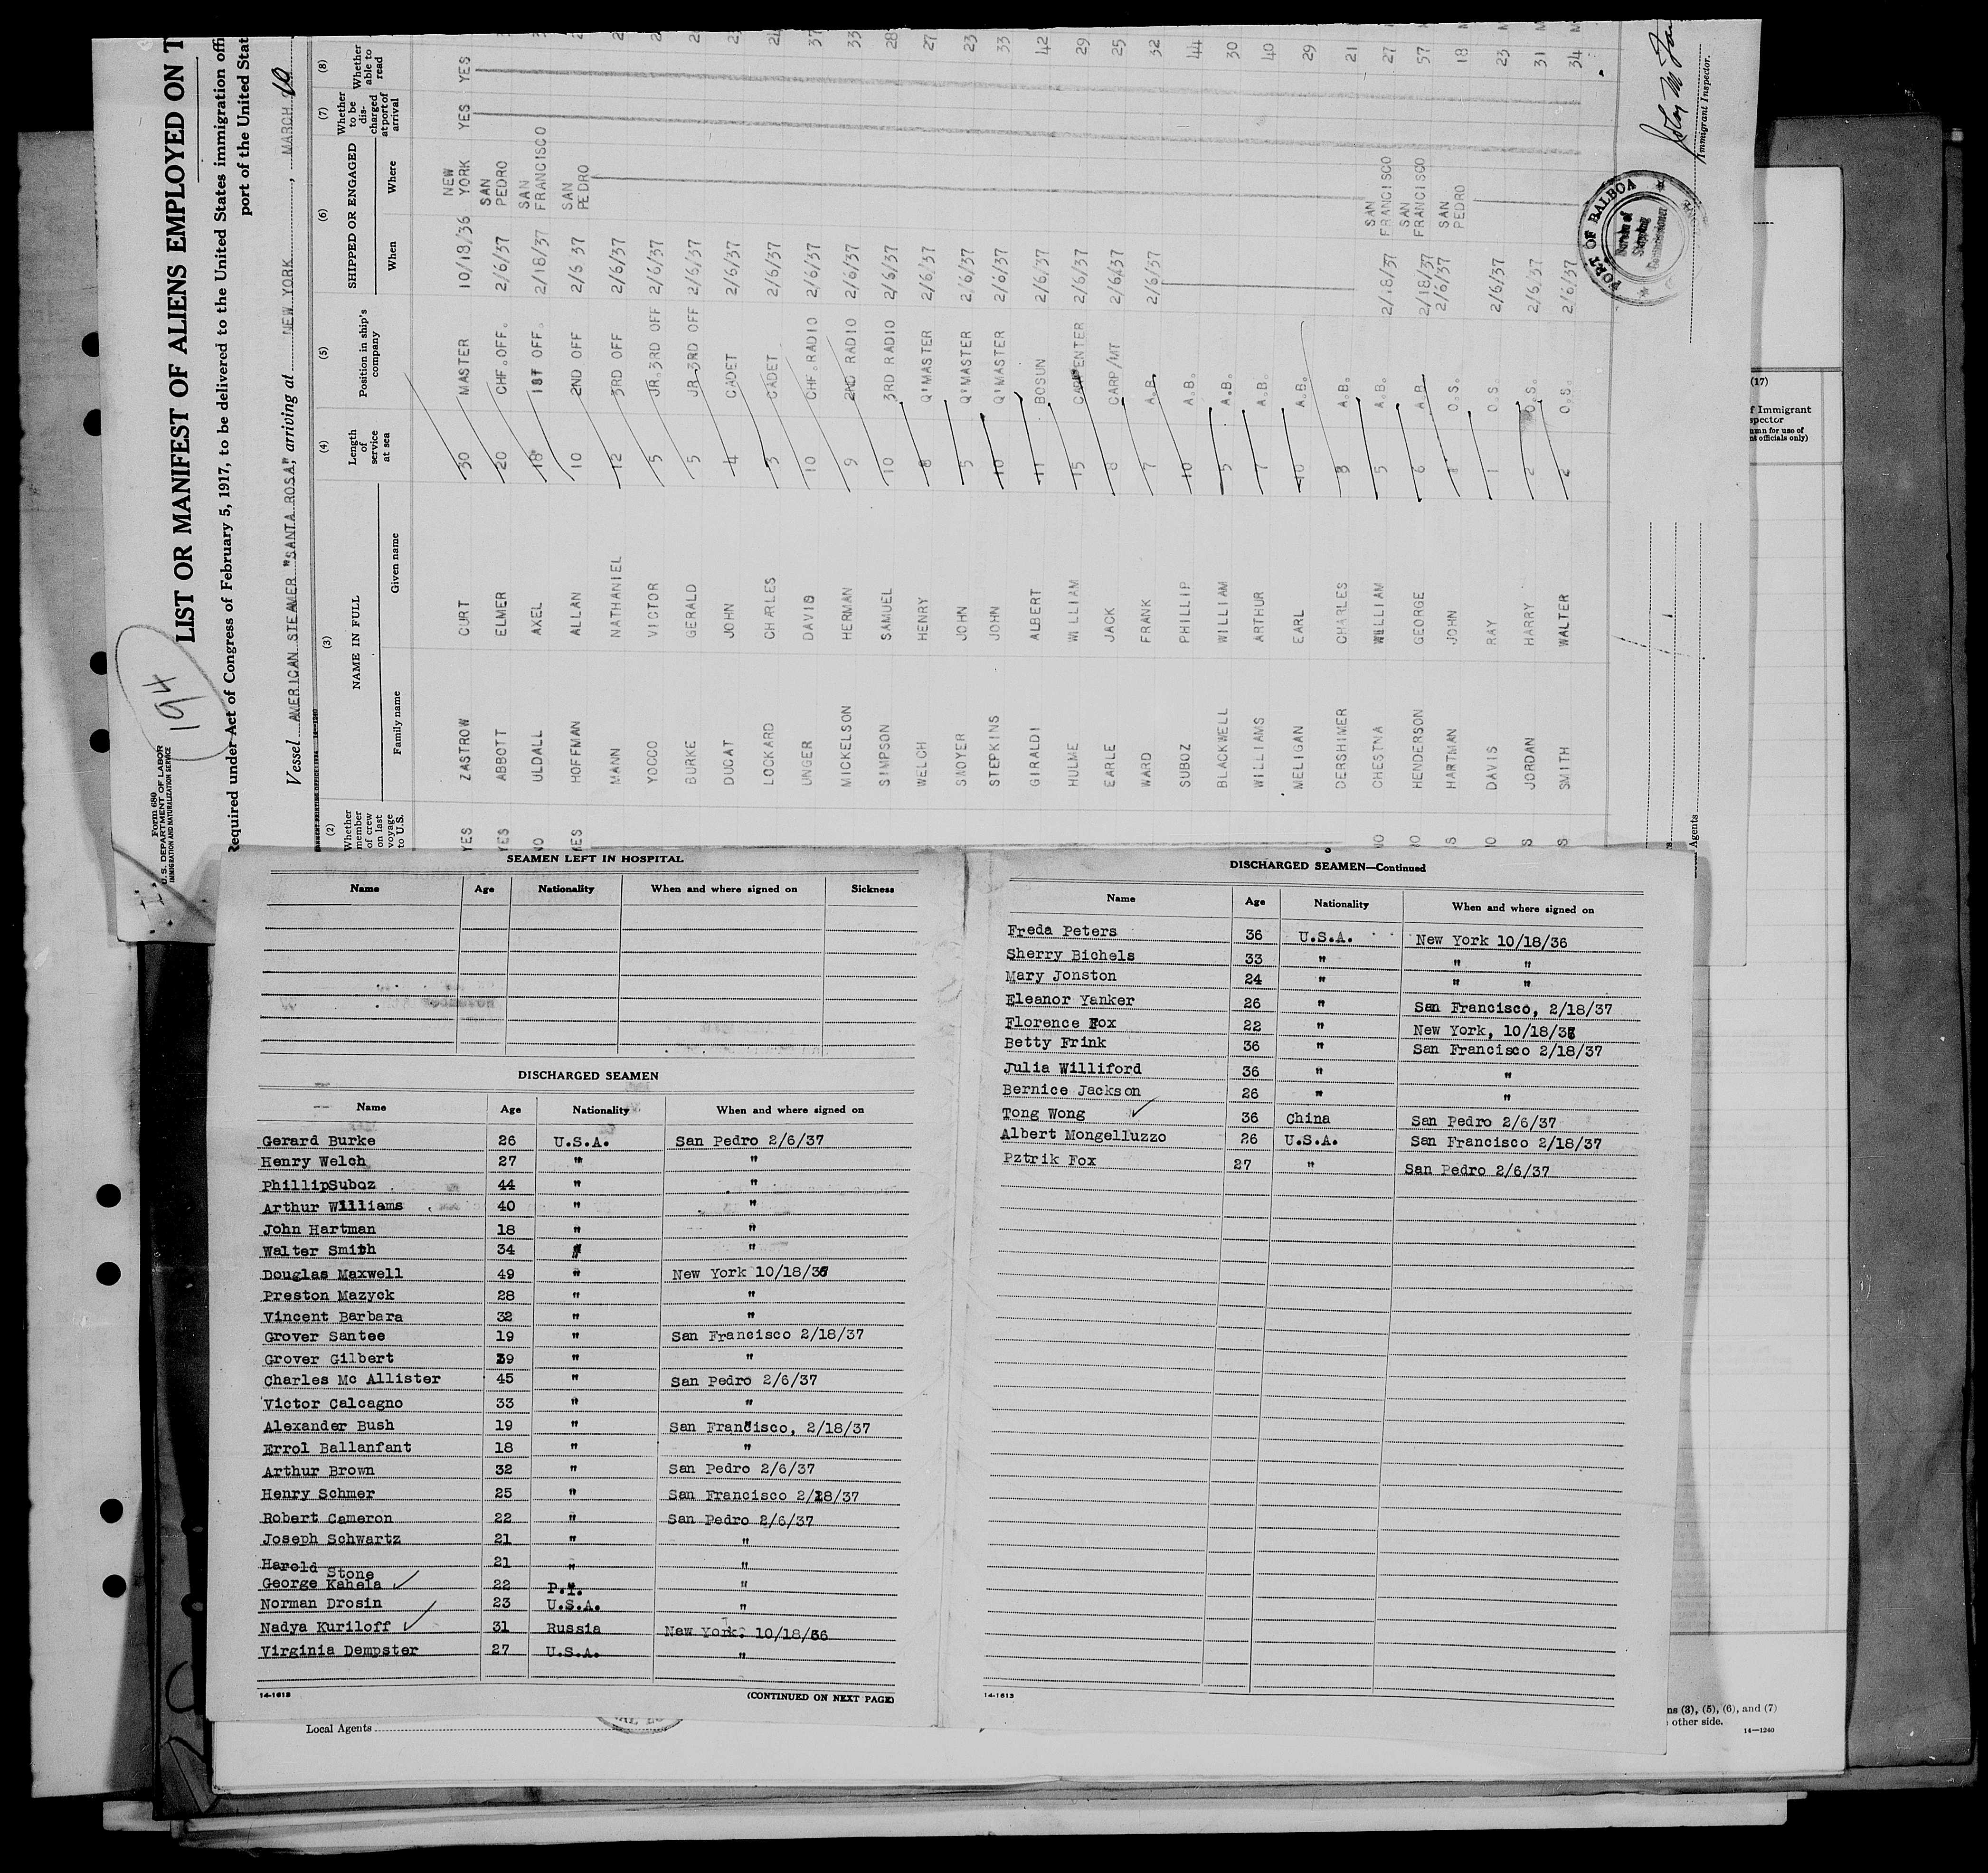 Form 680
U. S. DEPARTMENT OF LABOR
IMMIGRATION AND NATURALIZATION SERVICE
194
LIST OR MANIFEST OF ALIENS EMPLOYED ON T
Required under Act of Congress of February 5, 1917, to be delivered to the United States immigration offi
port of the United Stat
Vessel AMERICAN STEAMER "SANTA ROSA", arriving at NEW YORK, MARCH
(2) Whether member of crew on last voyage to U.S.
(3) NAME IN FULL
Family name Given name
(4) Length of service at sea
(5) Position in ship's company
(6) SHIPPED OR ENGAGED
When Where
(7) Whether to be discharged at port of arrival
(8) Whether able to read
YES ZASTROW CURT 30 MASTER 10/18/36 NEW YORK YES YES
YES ABBOTT ELMER 20 CHF.OFF. 2/6/37 SAN PEDRO
NO ULDALL AXEL 18 1ST OFF. 2/18/37 SAN FRANCISCO
YES HOFFMAN ALLAN 10 2ND OFF 2/6 37 SAN PEDRO
MANN NATHANIEL 12 3RD OFF 2/6/37
YOCCO VICTOR 5 JR.3RD OFF 2/6/37
BURKE GERALD 5 JR 3RD OFF 2/6/37
DUCAT JOHN 4 CADET 2/6/37
LOCKARD CHARLES 3 CADET 2/6/37
UNGER DAVID 10 CHF.RADIO 2/6/37 37
MICKELSON HERMAN 9 2ND RADIO 2/6/37 33
SIMPSON SAMUEL 10 3RD RADIO 2/6/37 28
WELCH HENRY 8 Q'MASTER 2/6/37 27
SMOYER JOHN 5 Q'MASTER 2/6/37 23
STEPKINS JOHN 10 Q'MASTER 2/6/37 33
GIRALDI ALBERT 11 BOSUN 2/6/37 42
HULME WILLIAM 15 CARPENTER 2/6/37 29
EARLE JACK 8 CARP/MT 2/6/37 25
WARD FRANK 7 A.B. 2/6/37 32
SUBOZ PHILLIP 10 A.B. 44
BLACKWELL WILLIAM 5 A.B. 30
WILLIAMS ARTHUR 7 A.B. 40
MELIGAN EARL 10 A.B. 29
DERSHIMER CHARLES 3 A.B. 21
NO CHESTNA WILLIAM 5 A.B. 2/18/37 SAN FRANCISCO 27
NO HENDERSON GEORGE 6 A.B. 2/18/37 SAN FRANCISCO 57
S HARTMAN JOHN O.S. 2/6/37 SAN PEDRO 18
NO DAVIS RAY 1 O.S. 2/6/37 23
S JORDAN HARRY 2 O.S. 2/6/37 31
S SMITH WALTER 2 O.S. 2/6/37 34
PORT OF BALBOA
Shipping Commissioner
Immigrant Inspector.
Agents
(17)
f Immigrant
spector
umn for use of
nt officials only)
SEAMEN LEFT IN HOSPITAL
Name Age Nationality When and where signed on Sickness
DISCHARGED SEAMEN
Name Age Nationality When and where signed on
Gerard Burke 26 U.S.A. San Pedro 2/6/37
Henry Welch 27 " "
PhillipSuboz 44 " "
Arthur Williams 40 " "
John Hartman 18 " "
Walter Smith 34 " "
Douglas Maxwell 49 " New York 10/18/36
Preston Mazyck 28 " "
Vincent Barbara 32 " "
Grover Santee 19 " San Francisco 2/18/37
Grover Gilbert 39 " "
Charles Mc Allister 45 " San Pedro 2/6/37
Victor Calcagno 33 " "
Alexander Bush 19 " San Francisco, 2/18/37
Errol Ballanfant 18 " "
Arthur Brown 32 " San Pedro 2/6/37
Henry Schmer 25 " San Francisco 2/18/37
Robert Cameron 22 " San Pedro 2/6/37
Joseph Schwartz 21 " "
Harold Stone 21 " "
George Kahela 22 P.I. "
Norman Drosin 23 U.S.A. "
Nadya Kuriloff 31 Russia New York. 10/18/36
Virginia Dempster 27 U.S.A. "
14-1613
(CONTINUED ON NEXT PAGE)
DISCHARGED SEAMEN—Continued
Name Age Nationality When and where signed on
Freda Peters 36 U.S.A. New York 10/18/36
Sherry Bichels 33 " " "
Mary Jonston 24 " " "
Eleanor Yanker 26 " San Francisco, 2/18/37
Florence Fox 22 " New York, 10/18/36
Betty Frink 36 " San Francisco 2/18/37
Julia Williford 36 " "
Bernice Jackson 26 " "
Tong Wong 36 China San Pedro 2/6/37
Albert Mongelluzzo 26 U.S.A. San Francisco 2/18/37
Pztrik Fox 27 " San Pedro 2/6/37
14-1613
Local Agents
ns (3), (5), (6), and (7)
other side.
14—1240